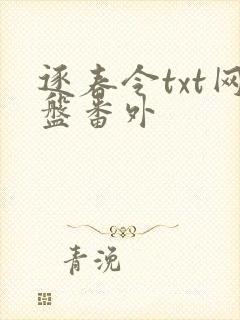 逐春令txt网
盘番外
青浼